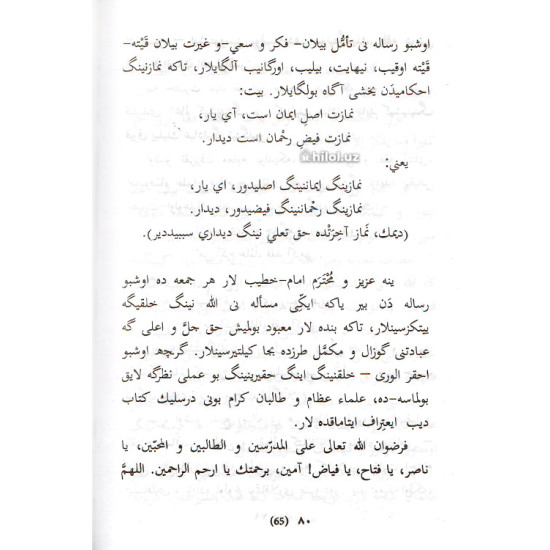 اوشبو رساله نى تأمُّل بيلان– فكر و سعي–و غيرت بيلان قَيْته–
قَيْته اوقيب، نيهايت، بيليب، اورگانيب آلگايلار، تاكه نمازنينگ
احكاميدَن يخشى آگاه بولگايلار. بيت:
نمازت اصلِ ايمان است، آي يار،
نمازت فيضِ رحْمان است ديدار.
hilol.uz
يعني:
نمازينگ ايماننينگ اصليدور، اي يار،
نمازينگ رحْماننينگ فيضيدور، ديدار.
(ديمك، نَماز آخِرَتْده حق تعلي نينگ ديداري سببيددير).
ينه عزيز و مُحْتَرَم امام–خطيب لار هر جمعه ده اوشبو
رساله دَن بير ياكه ايكِّي مسأله نى الله نينگ خلقيگه
ييتكزسينلار، تاكه بنده لار معبود بولميش حق جلَّ و اعلى گه
عبادتنى گوزال و مكمَّل طرزده بجا كيلتيرسينلار. گرچه اوشبو
احقر الورى – خلقنينگ اينگ حقيرينينگ بو عملى نظرگه لايق
بولماسه–ده، علماء عظام و طالبان كرام بونى درسليك كتاب
ديب ايعتِراف ايتاماقده لار.
فرضوان الله تعالى على المدرّسين و الطالبين و المحبّين، يا
ناصر، يا فتاح، يا فياض! آمين، برحمتك يا ارحم الراحمين. اللهمَّ
٨٠ (65)